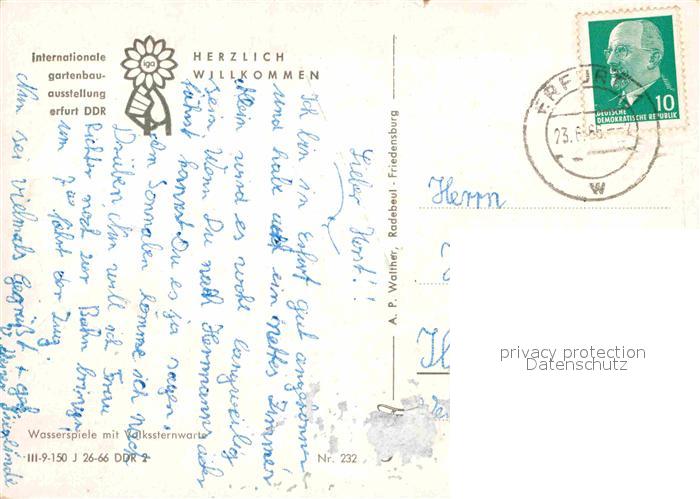 Internationale
gartenbau-
ausstellung
erfurt DDR
iga
HERZLICH
WILLKOMMEN
Lieber Horst!
Ich bin in Erfurt gut angekommen
und habe auch ein nettes Zimmer
Allein wird es wohl langweilig
sein. Wenn Du nach Hermann
fährst kannst Du es ja sagen,
den Sonnaben komme ich nach
Drüben, Nun will ich Frau
Richter noch zur Bahn bringen
um 7 fährt der Zug.
Nun sei vielmals Gegrüßt +
Deiner
Wasserspiele mit Volkssternwarte
III-9-150 J 26-66 DDR 2
Nr. 232
A. P. Walther, Radebeul - Friedensburg
ERFURT
23.6.66
w
10
DEUTSCHE
DEMOKRATISCHE REPUBLIK
Herrn
privacy protection
Datenschutz